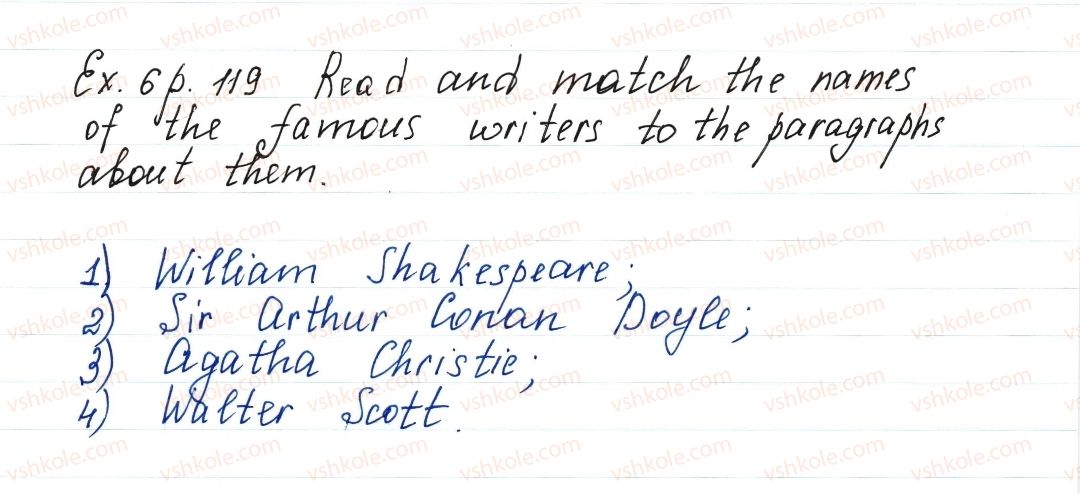 Ex. 6 p. 119 Read and match the names
of the famous writers to the paragraphs
about them.
1) William Shakespeare;
2) Sir Arthur Conan Doyle;
3) Agatha Christie;
4) Walter Scott.